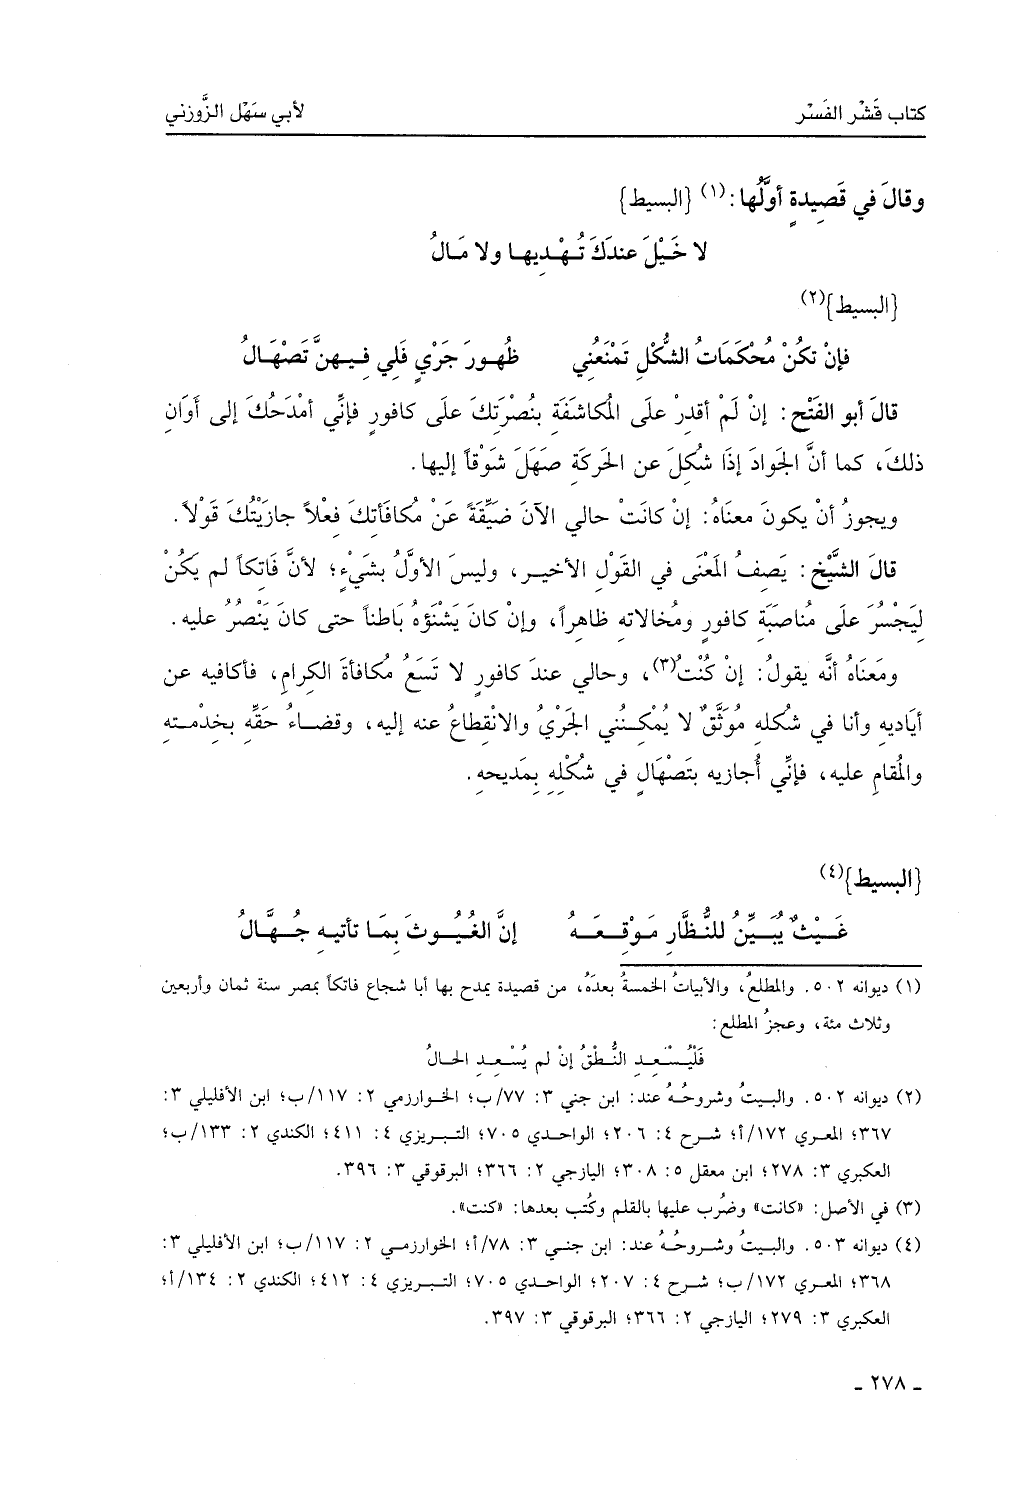 كتاب قَشْر الفَسْر لأبي سَهْل الزَّوزني
وقالَ في قَصِيدةٍ أولُّها: (١) {البسيط}
لا خَيْلَ عندَكَ تُهْدِيها ولا مَالُ
{البسيط}(٢)
فإنْ تكُنْ مُحْكَمَاتُ الشُّكْلِ تمْنَعُني ظُهورَ جَرْيٍ فَلِي فِيهنَّ تَصْهَالُ
قالَ أبو الفَتْح: إنْ لَمْ أقدِرْ علَى المُكاشَفَةِ بنُصْرَتِكَ علَى كافورٍ فإنِّي أمْدَحُكَ إلى أَوَانِ
ذلكَ، كما أنَّ الجَوادَ إذَا شُكِلَ عن الحَركَةِ صهَلَ شَوْقاً إليها.
ويجوزُ أنْ يكونَ معنَاهُ: إنْ كانَتْ حالي الآنَ ضَيِّقَةً عَنْ مُكافَأتِكَ فعْلاً جازَيْتُكَ قَوْلاً.
قالَ الشَّيْخ: يَصِفُ المَعْنَى في القَولِ الأخيرِ، وليسَ الأولَّ بشَيْءٍ؛ لأنَّ فَاتكاً لم يكُنْ
لِيَجْسُرَ علَى مُناصَبَةِ كافورٍ ومُخالاتهِ ظاهراً، وإنْ كانَ يَشْنَؤهُ بَاطناً حتى كانَ يَنْصُرُ عليه.
ومَعنَاهُ أنَّه يقولُ: إنْ كُنْتُ(٣)، وحالي عندَ كافورٍ لا تَسَعُ مُكافأةَ الكرامِ، فأكافيه عن
أيَاديهِ وأنا في شُكلهِ مُوَثَّقٌ لا يُمْكِنُني الجَرْيُ والانْقطاعُ عنه إليه، وقضاءُ حَقِّهِ بِخدْمتهِ
والمُقامِ عليه، فإنِّي أُجازيه بتَصْهَالٍ في شُكْلِهِ بِمَديحهِ.
{البسيط}(٤)
غَيْثٌ يُبَيِّنُ للنُّظَّارِ مَوْقِعَهُ إنَّ الغُيُوثَ بِمَا تأتيهِ جُهَّالُ
(١) ديوانه ٥٠٢. والمطلعُ، والأبياتُ الخمسةُ بعدَهُ، من قصيدة يمدح بها أبا شجاع فاتكاً بمصر سنة ثمان وأربعين
وثلاث مئة، وعجزُ المطلع:
فَلْيُسْعِدِ النُّطْقُ إنْ لم يُسْعِدِ الحالُ
(٢) ديوانه ٥٠٢. والبيتُ وشروحُهُ عند: ابن جني ٣: ٧٧/ب؛ الخوارزمي ٢: ١١٧/ب؛ ابن الأفليلي ٣:
٣٦٧؛ المعري ١٧٢/أ؛ شرح ٤: ٢٠٦؛ الواحدي ٧٠٥؛ التبريزي ٤: ٤١١؛ الكندي ٢: ١٣٣/ب؛
العكبري ٣: ٢٧٨؛ ابن معقل ٥: ٣٠٨؛ اليازجي ٢: ٣٦٦؛ البرقوقي ٣: ٣٩٦.
(٣) في الأصل: «كانت» وضُرب عليها بالقلم وكُتب بعدها: «كنت».
(٤) ديوانه ٥٠٣. والبيتُ وشروحُهُ عند: ابن جني ٣: ٧٨/أ؛ الخوارزمي ٢: ١١٧/ب؛ ابن الأفليلي ٣:
٣٦٨؛ المعري ١٧٢/ب؛ شرح ٤: ٢٠٧؛ الواحدي ٧٠٥؛ التبريزي ٤: ٤١٢؛ الكندي ٢: ١٣٤/أ؛
العكبري ٣: ٢٧٩؛ اليازجي ٢: ٣٦٦؛ البرقوقي ٣: ٣٩٧.
ـ ٢٧٨ ـ